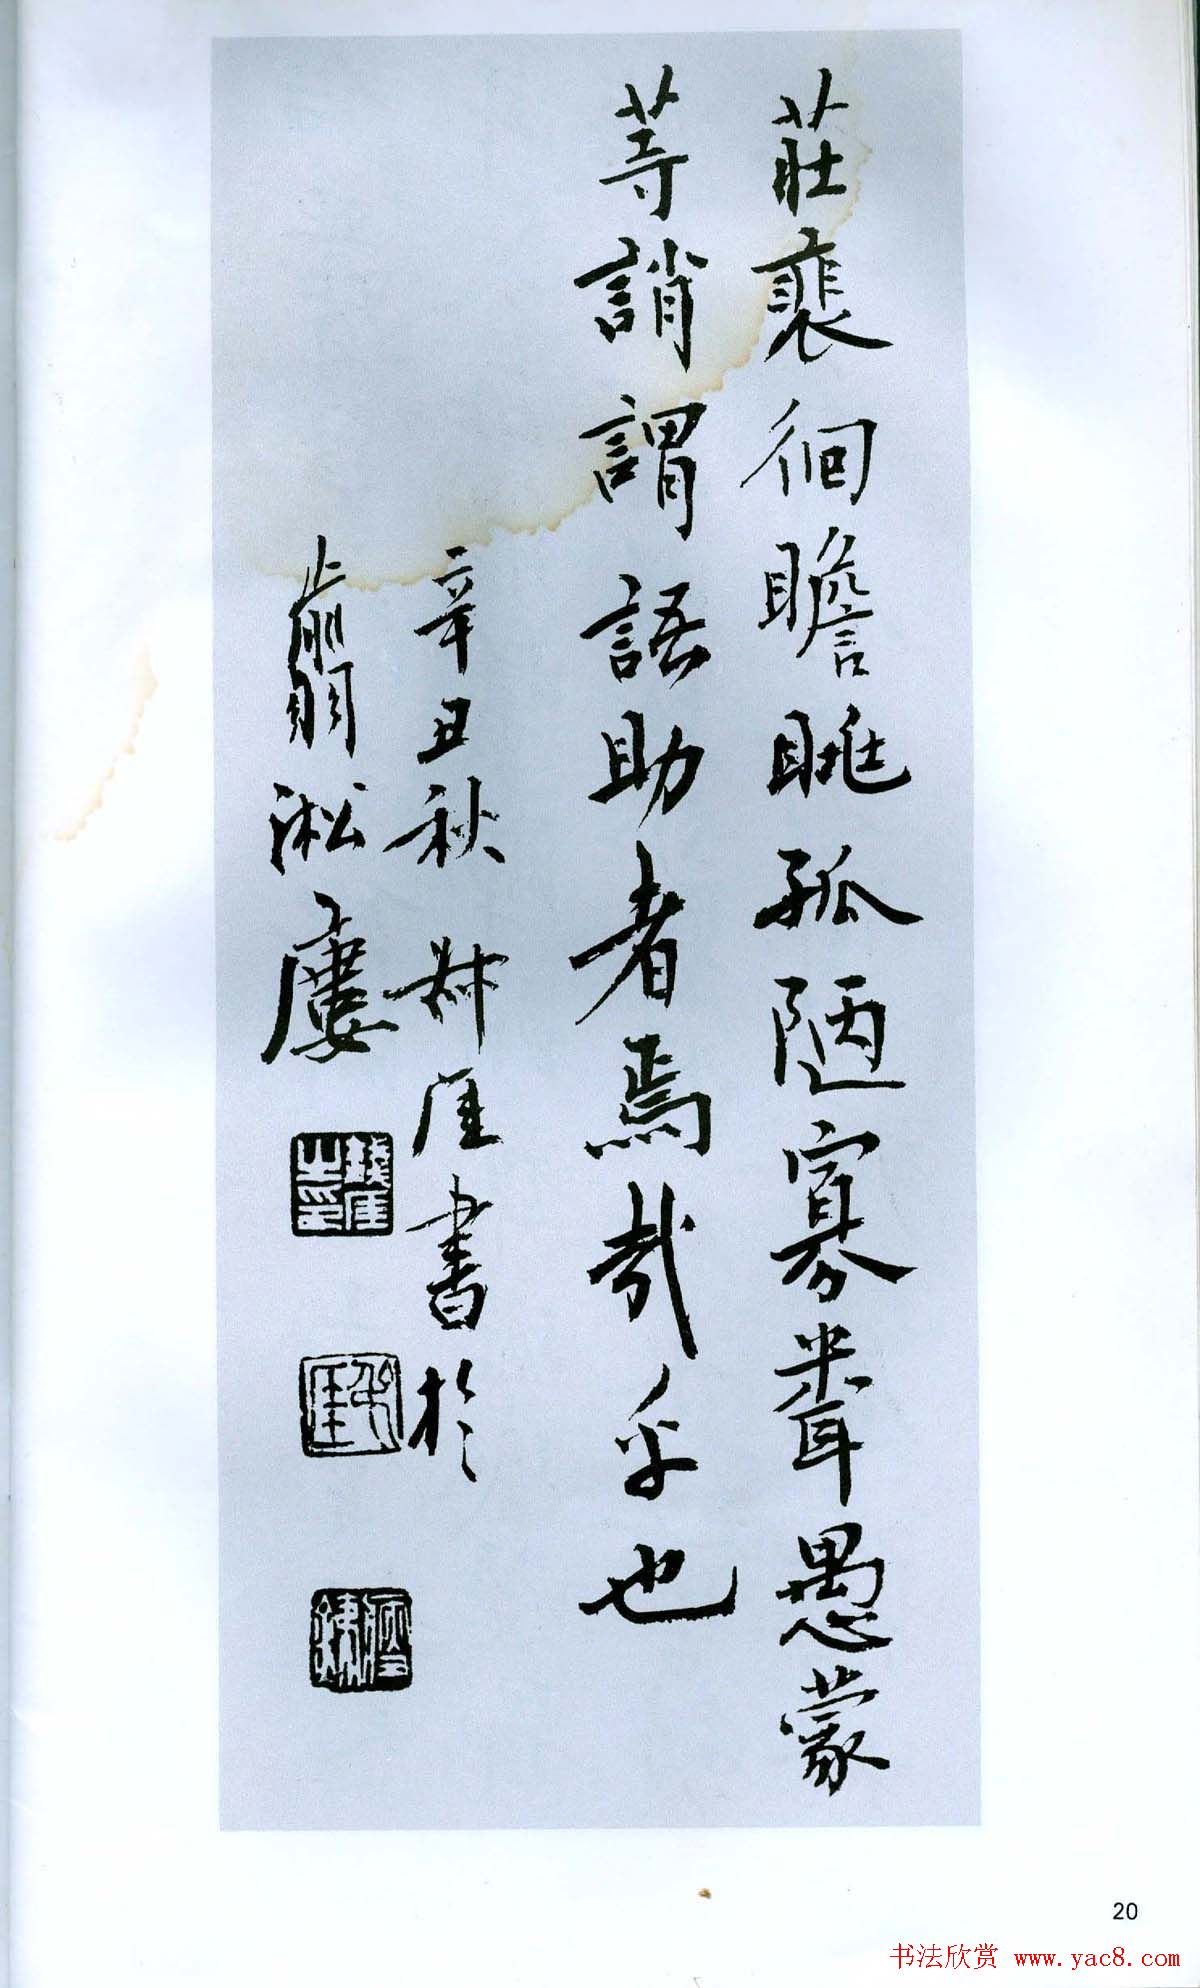 莊裵徊瞻眺孤陋寡聋愚蒙
等誚謂語助者焉哉乎也
辛丑秋 叔厓書於
淞廔
20
书法欣赏 www.yac8.com